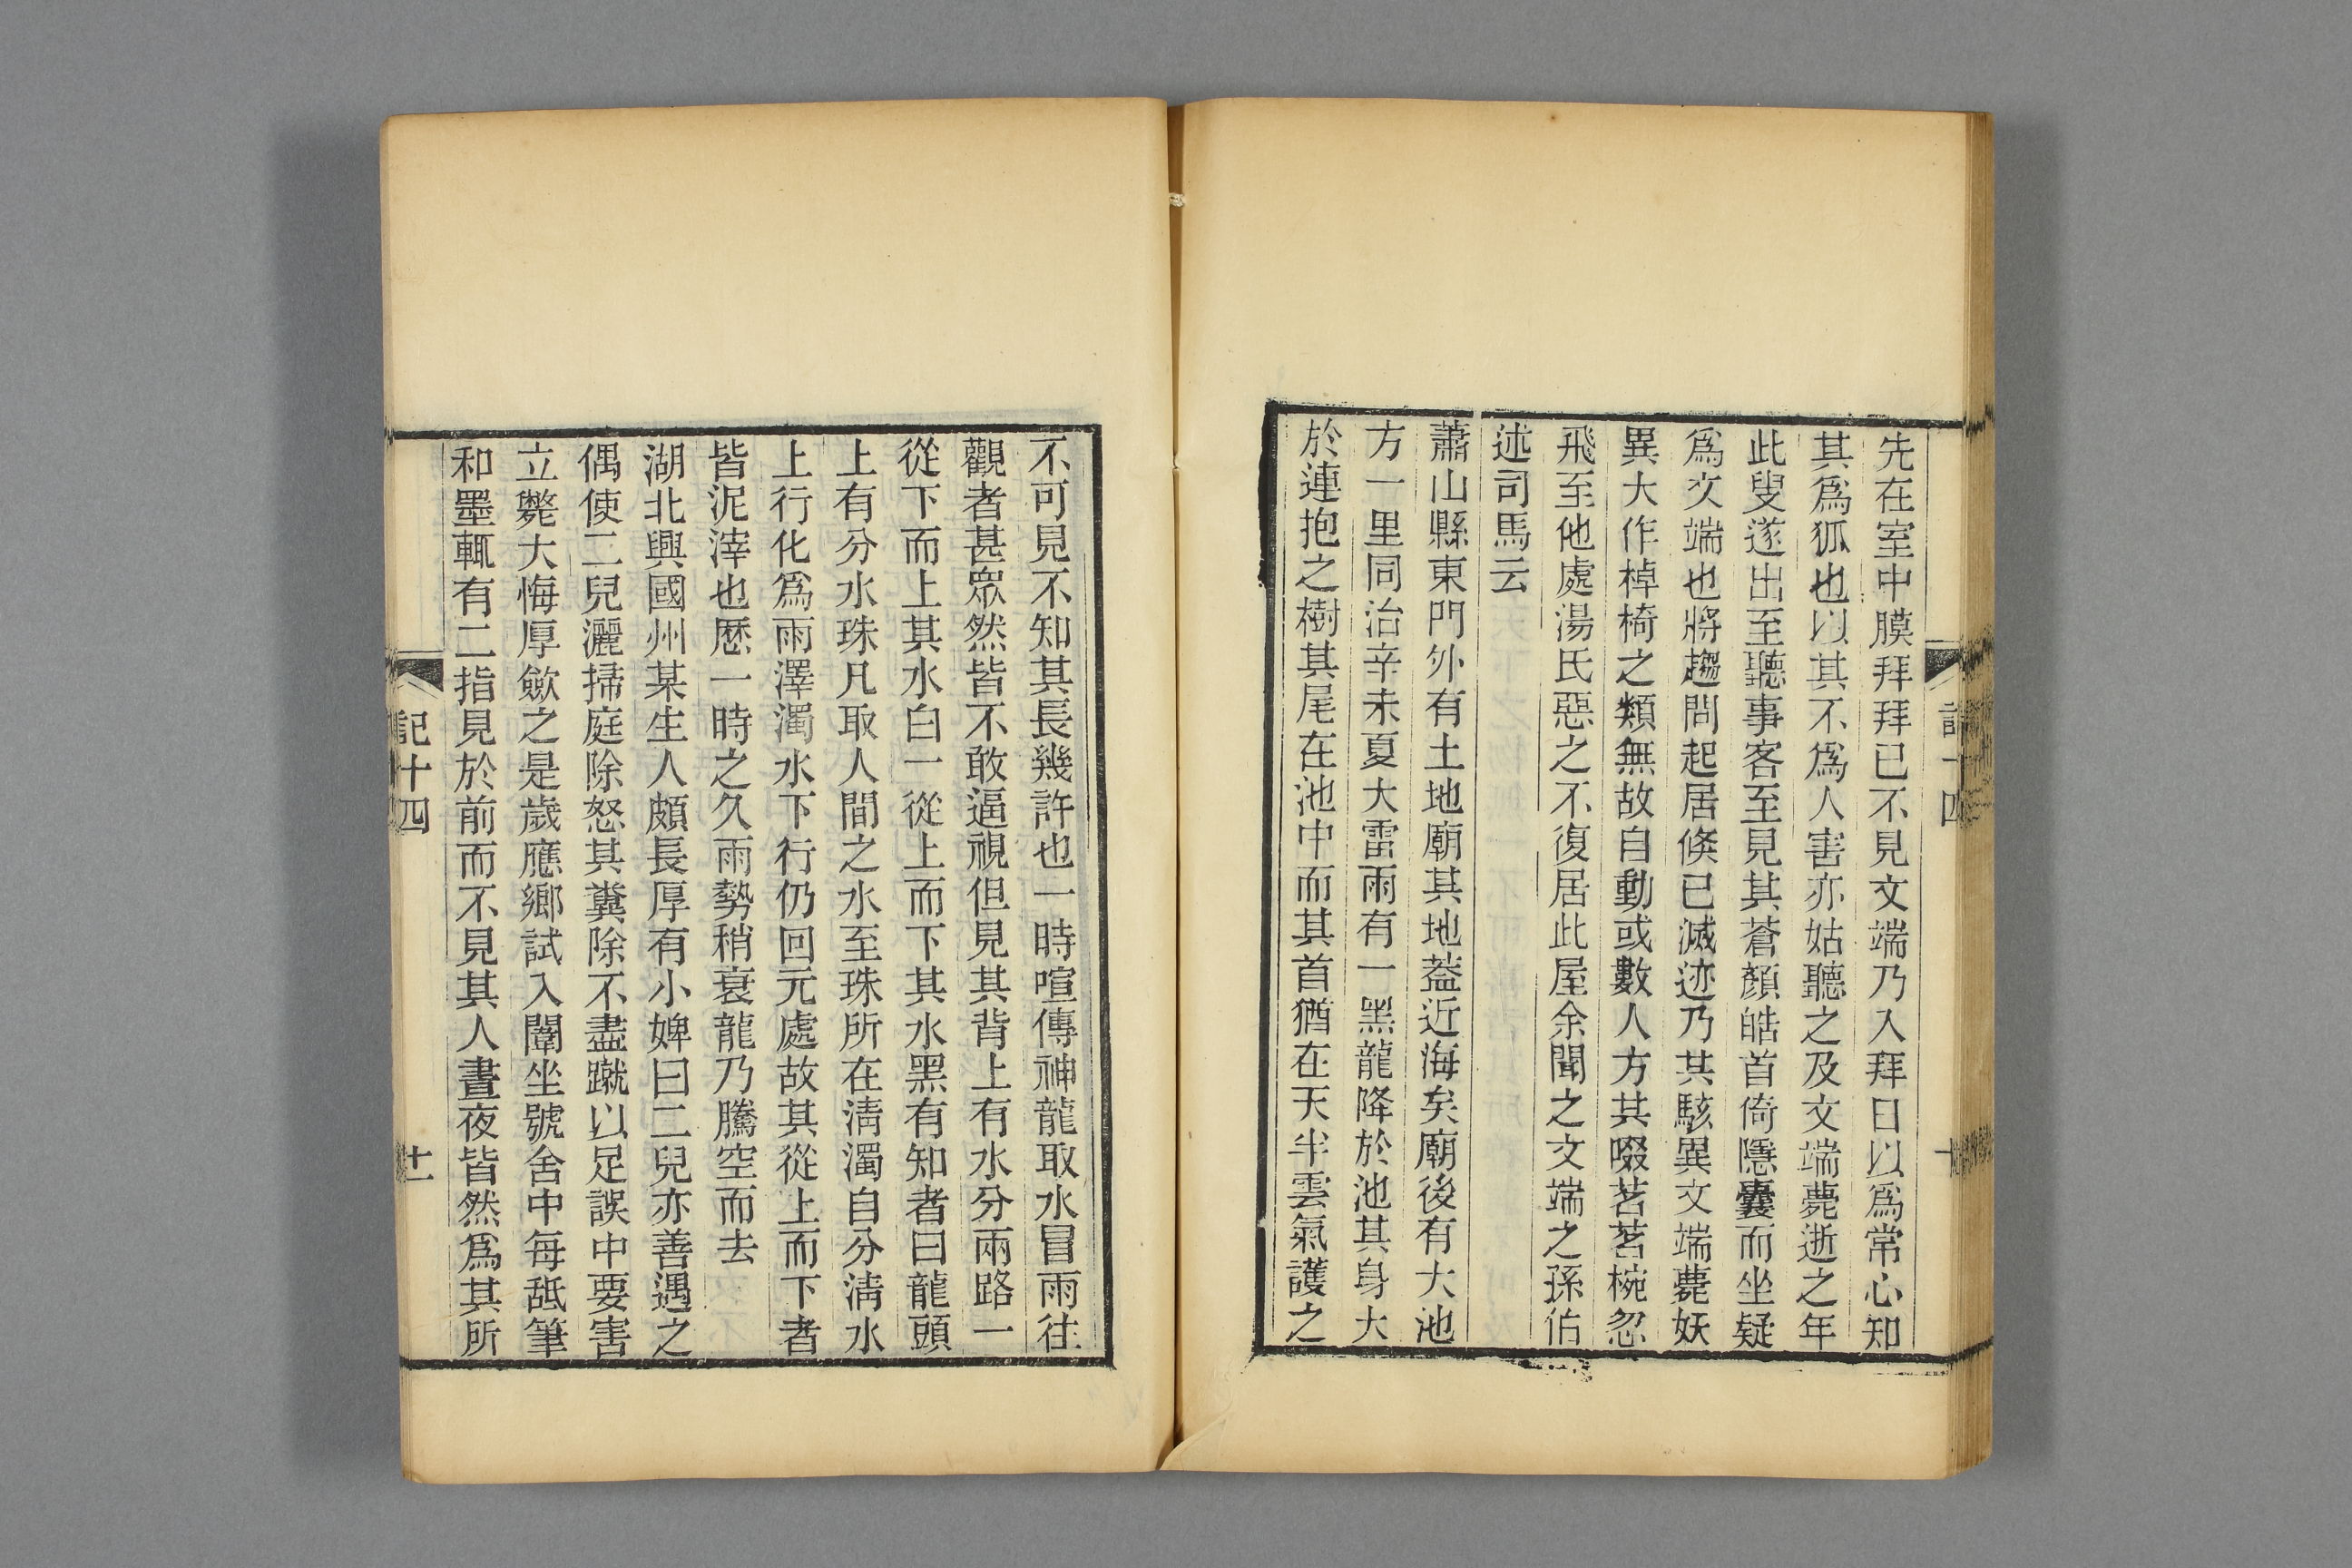 先在室中膜拜拜已不見文端乃入拜日以爲常心知
其爲狐也以其不爲人害亦姑聽之及文端薨逝之年
此叟遂出至聽事客至見其蒼顏皓首倚隱囊而坐疑
爲文端也將趨問起居倏已滅迹乃共駭異文端薨妖
異大作棹椅之類無故自動或數人方共啜茗茗椀忽
飛至他處湯氏惡之不復居此屋余聞之文端之孫伯
述司馬云
蕭山縣東門外有土地廟其地蓋近海矣廟後有大池
方一里同治辛未夏大雷雨有一黑龍降於池其身大
於連抱之樹其尾在池中而其首猶在天半雲氣護之
不可見不知其長幾許也一時喧傳神龍取水冒雨往
觀者甚眾然皆不敢逼視但見其背上有水分兩路一
從下而上其水白一從上而下其水黑有知者曰龍頭
上有分水珠凡取人間之水水至珠所在淸濁自分淸水
上行化爲雨澤濁水下行仍回元處故其從上而下者
皆泥滓也歷一時之久雨勢稍衰龍乃騰空而去
湖北興國州某生人頗長厚有小婢曰二兒亦善遇之
偶使二兒灑掃庭除怒其糞除不盡蹴以足誤中要害
立斃大悔厚斂之是歲應鄉試入闈坐號舍中每舐筆
和墨輒有二指見於前而不見其人晝夜皆然爲其所
記十四
十一